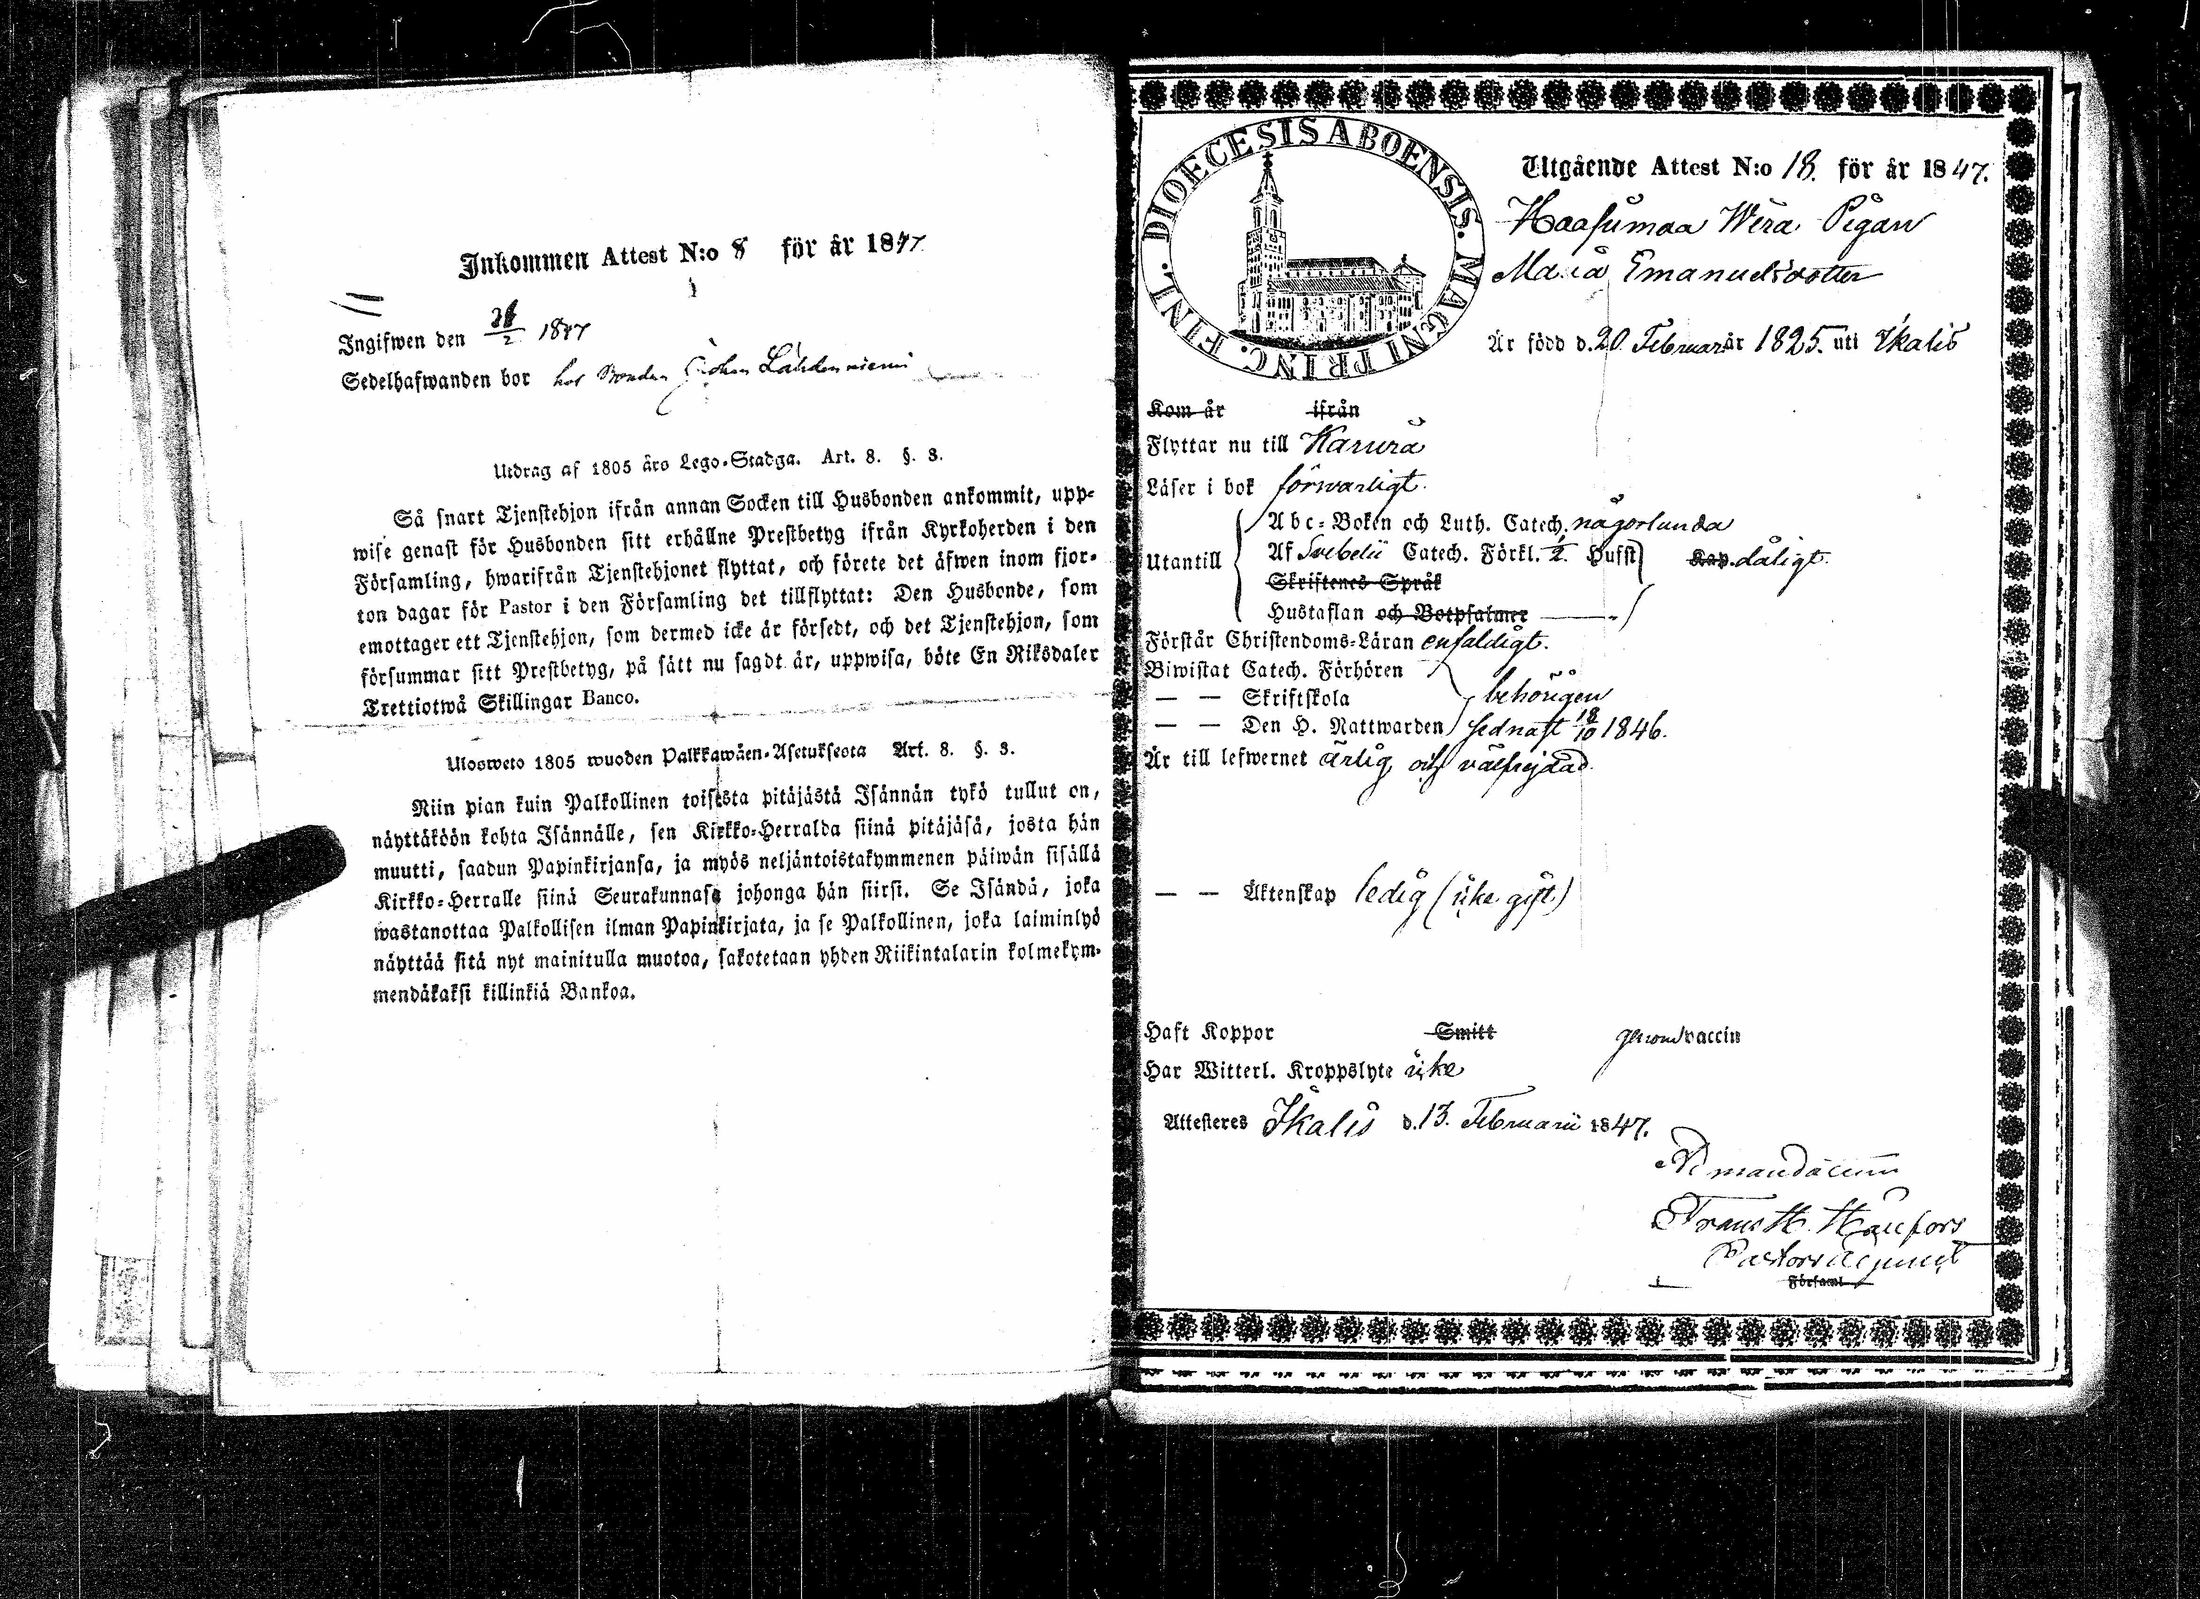 Inkommen Attest N:o 8 för år 1847
Ingifwen den 28/2 1847
Sedelhafwanden bor hos Bonden Johan Lähdenniemi
Utdrag af 1805 års Lego-Stadga. Art. 8. §. 3.
Så snart Tjenstehjon ifrån annan Socken till Husbonden ankommit, upp-
wise genast för Husbonden sitt erhållne Prestbetyg ifrån Kyrkoherden i den
Församling, hwarifrån Tjenstehjonet flyttat, och förete det äfwen inom fjor-
ton dagar för Pastor i den Församling det tillflyttat: Den Husbonde, som
emottager ett Tjenstehjon, som dermed icke är försedt, och det Tjenstehjon, som
försummar sitt Prestbetyg, på sätt nu sagdt är, uppwisa, böte En Riksdaler
Trettiotwå Skillingar Banco.
Ulosweto 1805 wuoden Palkkawäen-Asetuksesta Art. 8. §. 3.
Niin pian kuin Palkollinen toisesta pitäjästä Isännän tykö tullut on,
näyttäköön kohta Isännälle, sen Kirkko-Herralda siinä pitäjäsä, josta hän
muutti, saadun Papinkirjansa, ja myös neljäntoistakymmenen päiwän sisällä
Kirkko-Herralle siinä Seurakunnasa johonga hän siirsi. Se Isändä, joka
wastanottaa Palkollisen ilman Papinkirjata, ja se Palkollinen, joka laiminlyö
näyttää sitä nyt mainitulla muotoa, sakotetaan yhden Riikintalarin kolmekym-
mendäkaksi killinkiä Bankoa.
DIOECESIS ABOENSIS. MAGNI PRINC. FINL.
Utgående Attest N:o 18. för år 1847.
Haasumaa Wera Pigan
Maria Emanuelsdotter
Är född d. 20. Februar år 1825. uti Ikalis
Kom år ifrån
Flyttar nu till Karura
Läser i bok förswarligt.
Abc-Boken och Luth. Catech. någorlunda
Utantill Af Svebelii Catech. Förkl. 1/2. Hufst Kap. dåligt.
Skriftenes Språk
Hustaflan och Botpsalmer
Förstår Christendoms-Läran enfaldigt.
Biwistat Catech. Förhören
— — Skriftskola behörigen
— — Den H. Nattwarden sednast 18/10 1846.
Är till lefwernet ärlig och välfrejdad.
— — Äktenskap ledig (icke gift.)
Haft Koppor Smitt genom vaccin
Har Witterl. Kroppslyte icke
Attesteres Ikalis d. 13. Februarii 1847.
Ad mandatum
Frans H.
Pastorsadjunct
Församl.